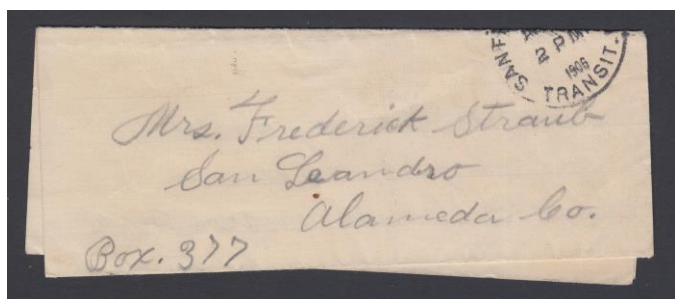 2 PM
1906
TRANSIT.
Mrs. Frederick Straub
San Leandro
Alameda Co.
Box. 377